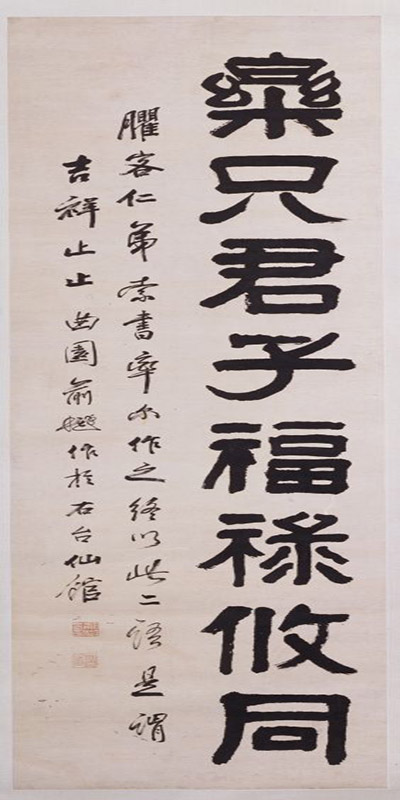 樂只君子福祿攸同
臞客仁弟索書率爾作之終以此二語是謂
吉祥止止 曲園俞樾作於右台仙館